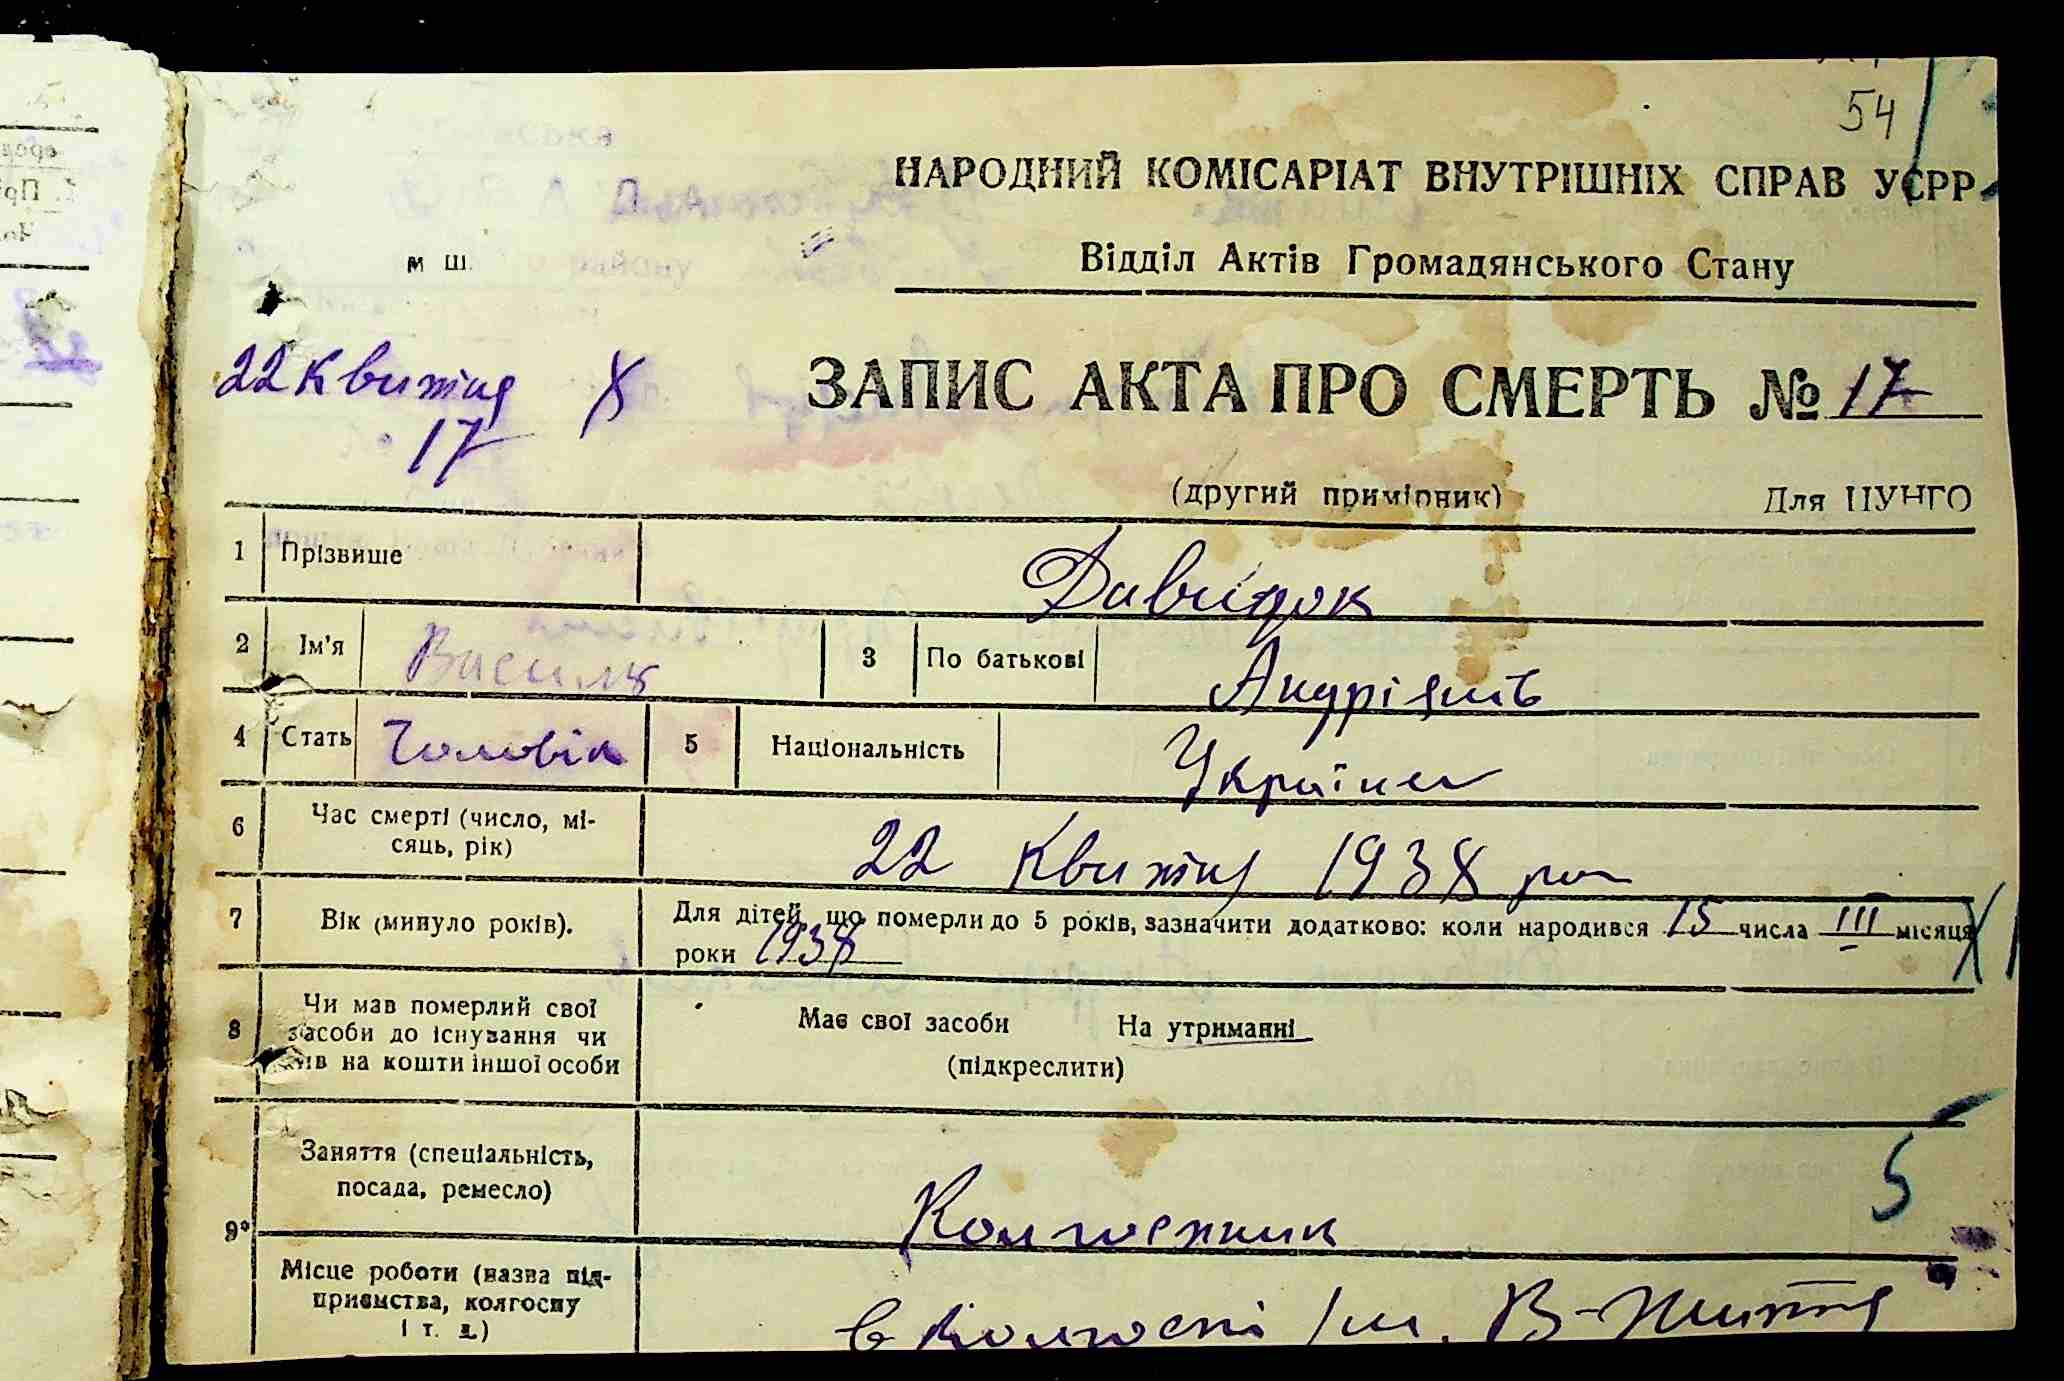 54
НАРОДНИЙ КОМІСАРІАТ ВНУТРІШНІХ СПРАВ УСРР
м ш. району
Відділ Актів Громадянського Стану
22 Квитня
17
ЗАПИС АКТА ПРО СМЕРТЬ № 17
(другий примірник) Для ЦУНГО
1 Прізвише Давидок
2 Ім'я Василь 3 По батькові Андріянів
4 Стать Чоловік 5 Національність Україн
6 Час смерті (число, мі-
сяць, рік) 22 Квитня 1938
7 Вік (минуло років). Для дітей, що померли до 5 років, зазначити додатково: коли народився 15 числа III місяця
роки 1938
8 Чи мав померлий свої
засоби до існування чи
на кошти іншої особи
Має свої засоби На утриманні
(підкреслити)
5
9 Заняття (спеціальність,
посада, ремесло) Колгоспник
Місце роботи (назва під-
приємства, колгоспу
і т. д.) в Колгоспі